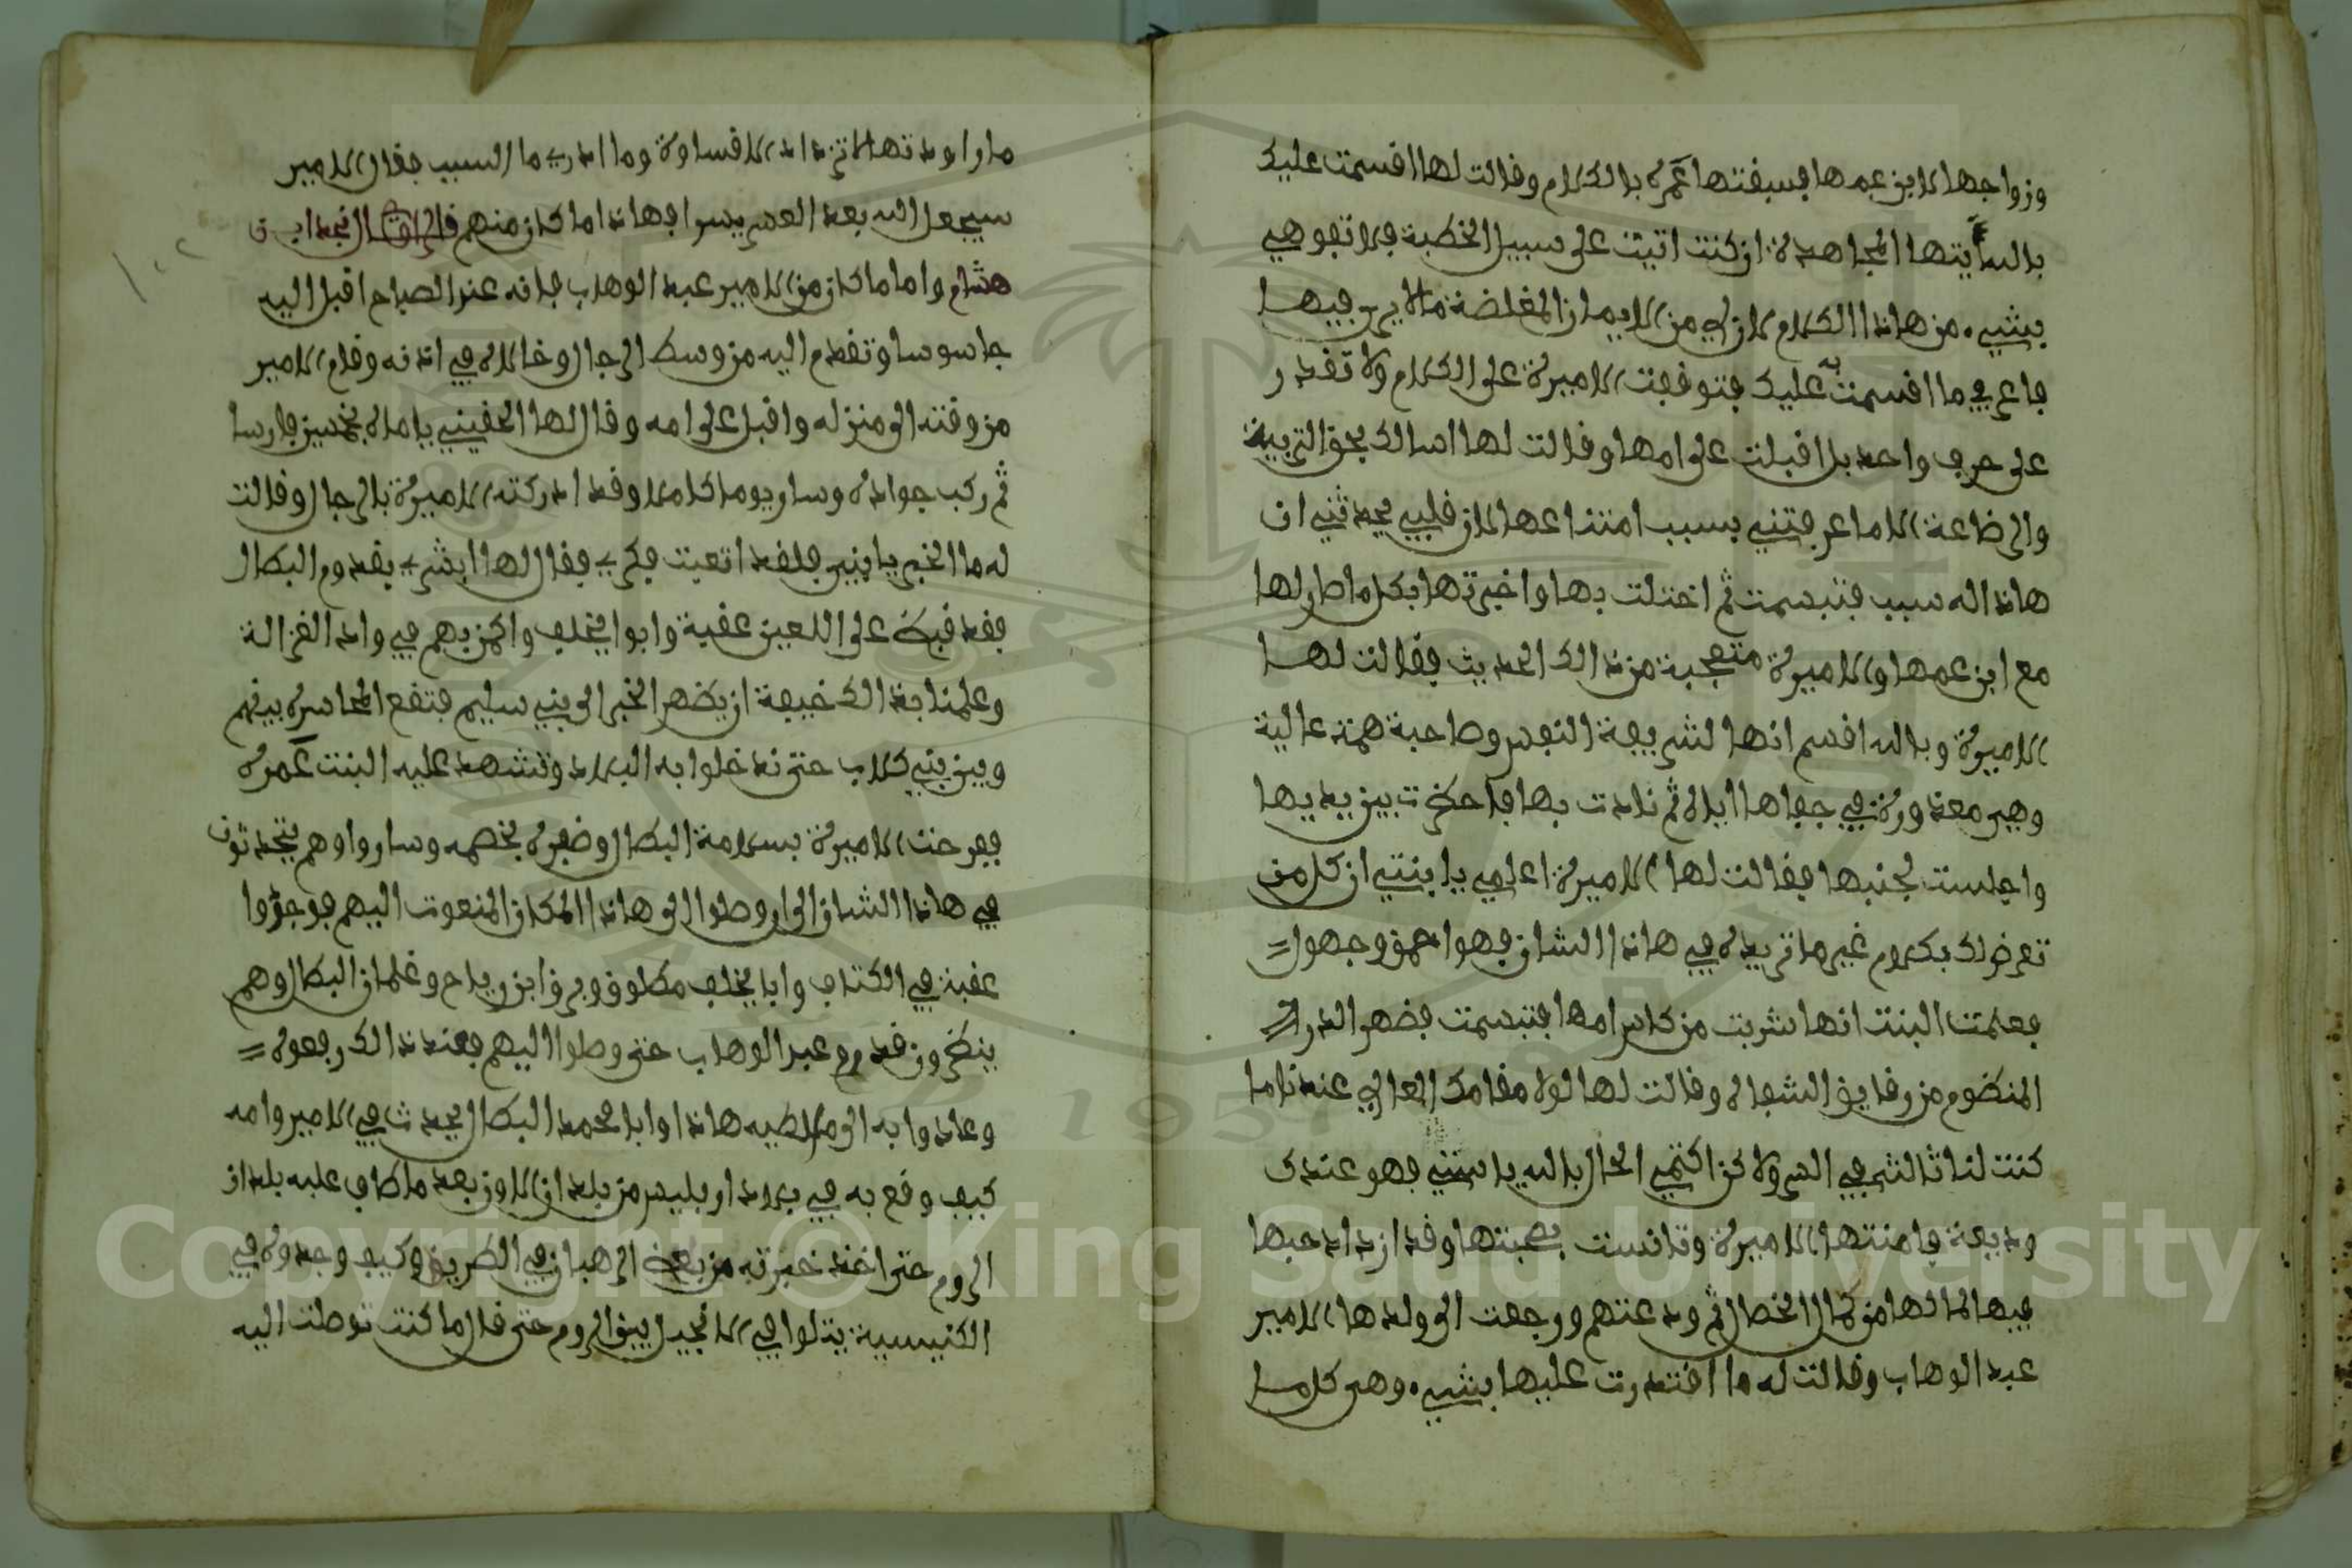 وزواجها لابن عمها فسبقتها عمرة بالكلام وقالت لها اقسمت عليك
بالله ايتها المجاهدة ان كنت اتيت على سبيل الخطبة فلا تفوهي
بشيء من هاذا الكلام لان لي من الايمان المغلضة ما لا يرى فيها
فاعرفي ما اقسمت به عليك فتوقفت الاميرة على الكلام ولا تقدر
على حرف واحد بل اقبلت على امها وقالت لها اسالك بحق التربية
والرضاعة الا ما عرفتني بسبب امتناعها لان قلبي يحدثني ان
هاذا له سبب فتبسمت ثم اختلت بها واخبرتها بكل ما صار لها
مع ابن عمها والاميرة متعجبة من ذالك الحديث فقالت لها
الاميرة وبالله اقسم انها لشريفة النفس وصاحبة همة عالية
وهي معذورة في جفاها اياه ثم نادت بها فاحضرت بين يديها
واجلست بجنبها فقالت لها الاميرة اعلمي يا بنتي ان كل من
تعرض لك بكلام غير ما تريده في هاذا الشان فهو احمق وجهول
فعلمت البنت انها شربت من كاس امها فتبسمت فضهر الدر
المنضوم من رقايق الشفاه وقالت لها لولا مقامك العالي عندنا ما
كنت لنا ثالث في السر ولاكن اكتمي الحال بالله يا ستي فهو عندك
وديعة فامنتها الاميرة وتانست بصحبتها وقد ازداد حبها
فيها لما لها من كمال الخصال ثم ودعتهم ورجعت الى ولدها الامير
عبد الوهاب وقالت له ما اقتدرت عليها بشيء وهي كلما
ما راودتها لا تزداد الا قساوة وما ادري ما السبب فقال الامير
سيجعل الله بعد العسر يسرا فهاذا ما كان منهم قال الراوي قال نجد ابن
هشام واما ما كان من الامير عبد الوهاب فانه عند الصباح اقبل اليه
جاسوسا وتقدم اليه من وسط الرجال وخالاه في اذنه وقام الامير
من وقته الى منزله واقبل على امه وقال لها الحقيني يا اماه بخمسين فارسا
ثم ركب جواده وسار يوما كاملا وقد ادركته الاميرة بالرجال وقالت
له ما الخبر يا بني فلقد اتعبت فكري فقال لها ابشري بقدوم البطال
فقد قبض على اللعين عقبة وابوا يخلف واكمن بهم في واد الغزالة
وعلمنا بذالك خيفة ان يضهر الخبر الى بني سليم فتقع المخاسرة بينهم
وبين بني كلاب حتى ندخلوا به البلاد وتشهد عليه البنت عمرة
ففرحت الاميرة بسلامة البطال وضفره بخصمه وساروا وهم يتحدثون
في هاذا الشان الى ان وصلوا الى هاذا المكان المنعوت اليهم فوجدوا
عقبة في الكتاف وابا يخلف مطلوق ويرى ابن رياح وغلمان البطال وهم
ينضرون قدوم عبد الوهاب حتى وصلوا اليهم فعند ذالك رفعوه
وعادوا به الى ملطيه هاذا وابا محمد البطال يحدث في الامير وامه
كيف وقع به في بلاد اربليس من بلدان اللاوز بعد ما طاف عليه بلدان
الروم حتى اخذ خبرته من بعض الرهبان في الطريق وكيف وجدوه في
الكنيسية يتلوا في الانجيل بين الروم حتى قال ما كنت توصلت اليه